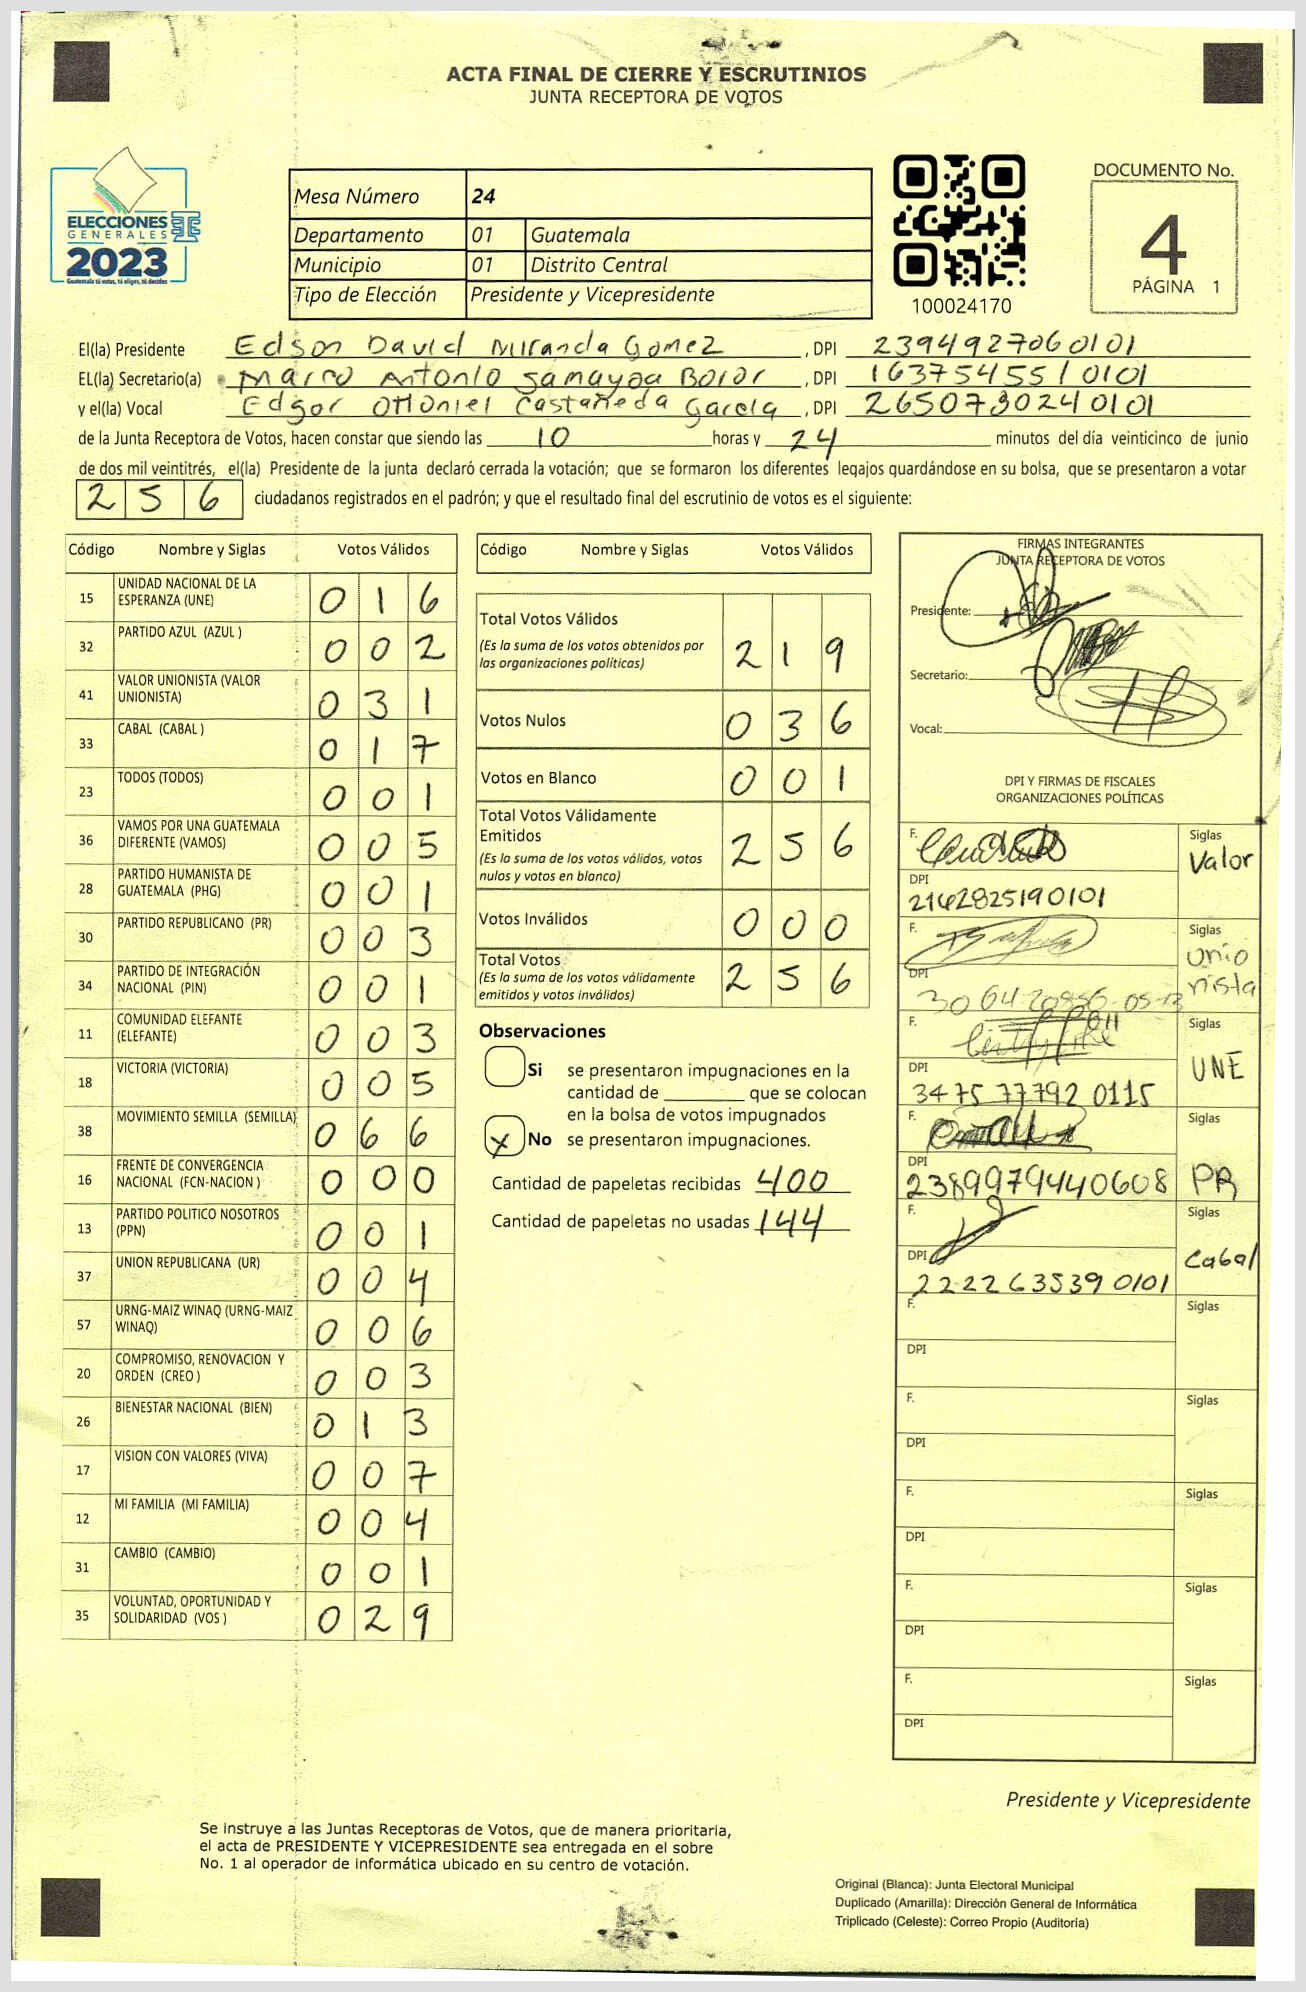 ACTA FINAL DE CIERRE Y ESCRUTINIOS
JUNTA RECEPTORA DE VOTOS
ELECCIONES
GENERALES
2023
Guatemala tú votas, tú eliges, tú decides
Mesa Número 24
Departamento 01 Guatemala
Municipio 01 Distrito Central
Tipo de Elección Presidente y Vicepresidente
100024170
DOCUMENTO No.
4
PÁGINA 1
El(la) Presidente Edson David Miranda Gomez, DPI 2394927060101
EL(la) Secretario(a) Marco Antonio Samayoa Boror, DPI 1637545510101
y el(la) Vocal Edgar OtToniel Castañeda García, DPI 2650730240101
de la Junta Receptora de Votos, hacen constar que siendo las 10 horas y 24 minutos del día veinticinco de junio
de dos mil veintitrés, el(la) Presidente de la junta declaró cerrada la votación; que se formaron los diferentes legajos quardándose en su bolsa, que se presentaron a votar
256 ciudadanos registrados en el padrón; y que el resultado final del escrutinio de votos es el siguiente:
Código Nombre y Siglas Votos Válidos
15 UNIDAD NACIONAL DE LA ESPERANZA (UNE) 016
32 PARTIDO AZUL (AZUL ) 002
41 VALOR UNIONISTA (VALOR UNIONISTA) 031
33 CABAL (CABAL ) 017
23 TODOS (TODOS) 001
36 VAMOS POR UNA GUATEMALA DIFERENTE (VAMOS) 005
28 PARTIDO HUMANISTA DE GUATEMALA (PHG) 001
30 PARTIDO REPUBLICANO (PR) 003
34 PARTIDO DE INTEGRACIÓN NACIONAL (PIN) 001
11 COMUNIDAD ELEFANTE (ELEFANTE) 003
18 VICTORIA (VICTORIA) 005
38 MOVIMIENTO SEMILLA (SEMILLA) 066
16 FRENTE DE CONVERGENCIA NACIONAL (FCN-NACION ) 000
13 PARTIDO POLITICO NOSOTROS (PPN) 001
37 UNION REPUBLICANA (UR) 004
57 URNG-MAIZ WINAQ (URNG-MAIZ WINAQ) 006
20 COMPROMISO, RENOVACION Y ORDEN (CREO ) 003
26 BIENESTAR NACIONAL (BIEN) 013
17 VISION CON VALORES (VIVA) 007
12 MI FAMILIA (MI FAMILIA) 004
31 CAMBIO (CAMBIO) 001
35 VOLUNTAD, OPORTUNIDAD Y SOLIDARIDAD (VOS ) 029
Código Nombre y Siglas Votos Válidos
Total Votos Válidos 219
(Es la suma de los votos obtenidos por
las organizaciones políticas)
Votos Nulos 036
Votos en Blanco 001
Total Votos Válidamente
Emitidos 256
(Es la suma de los votos válidos, votos
nulos y votos en blanco)
Votos Inválidos 000
Total Votos 256
(Es la suma de los votos válidamente
emitidos y votos inválidos)
Observaciones
Si se presentaron impugnaciones en la
cantidad de ________ que se colocan
en la bolsa de votos impugnados
X No se presentaron impugnaciones.
Cantidad de papeletas recibidas 400
Cantidad de papeletas no usadas 144
FIRMAS INTEGRANTES
JUNTA RECEPTORA DE VOTOS
Presidente:
Secretario:
Vocal:
DPI Y FIRMAS DE FISCALES
ORGANIZACIONES POLÍTICAS
F. Siglas Valor
DPI 2162825190101
F. Siglas Unio
nista
DPI
F. Siglas UNE
DPI 3475 77792 0115
F. Siglas PR
DPI 2389979440608
F. Siglas Cabal
DPI 2222635390101
F. Siglas
DPI
F. Siglas
DPI
F. Siglas
DPI
F. Siglas
DPI
F. Siglas
DPI
Presidente y Vicepresidente
Se instruye a las Juntas Receptoras de Votos, que de manera prioritaria,
el acta de PRESIDENTE Y VICEPRESIDENTE sea entregada en el sobre
No. 1 al operador de informática ubicado en su centro de votación.
Original (Blanca): Junta Electoral Municipal
Duplicado (Amarilla): Dirección General de Informática
Triplicado (Celeste): Correo Propio (Auditoría)